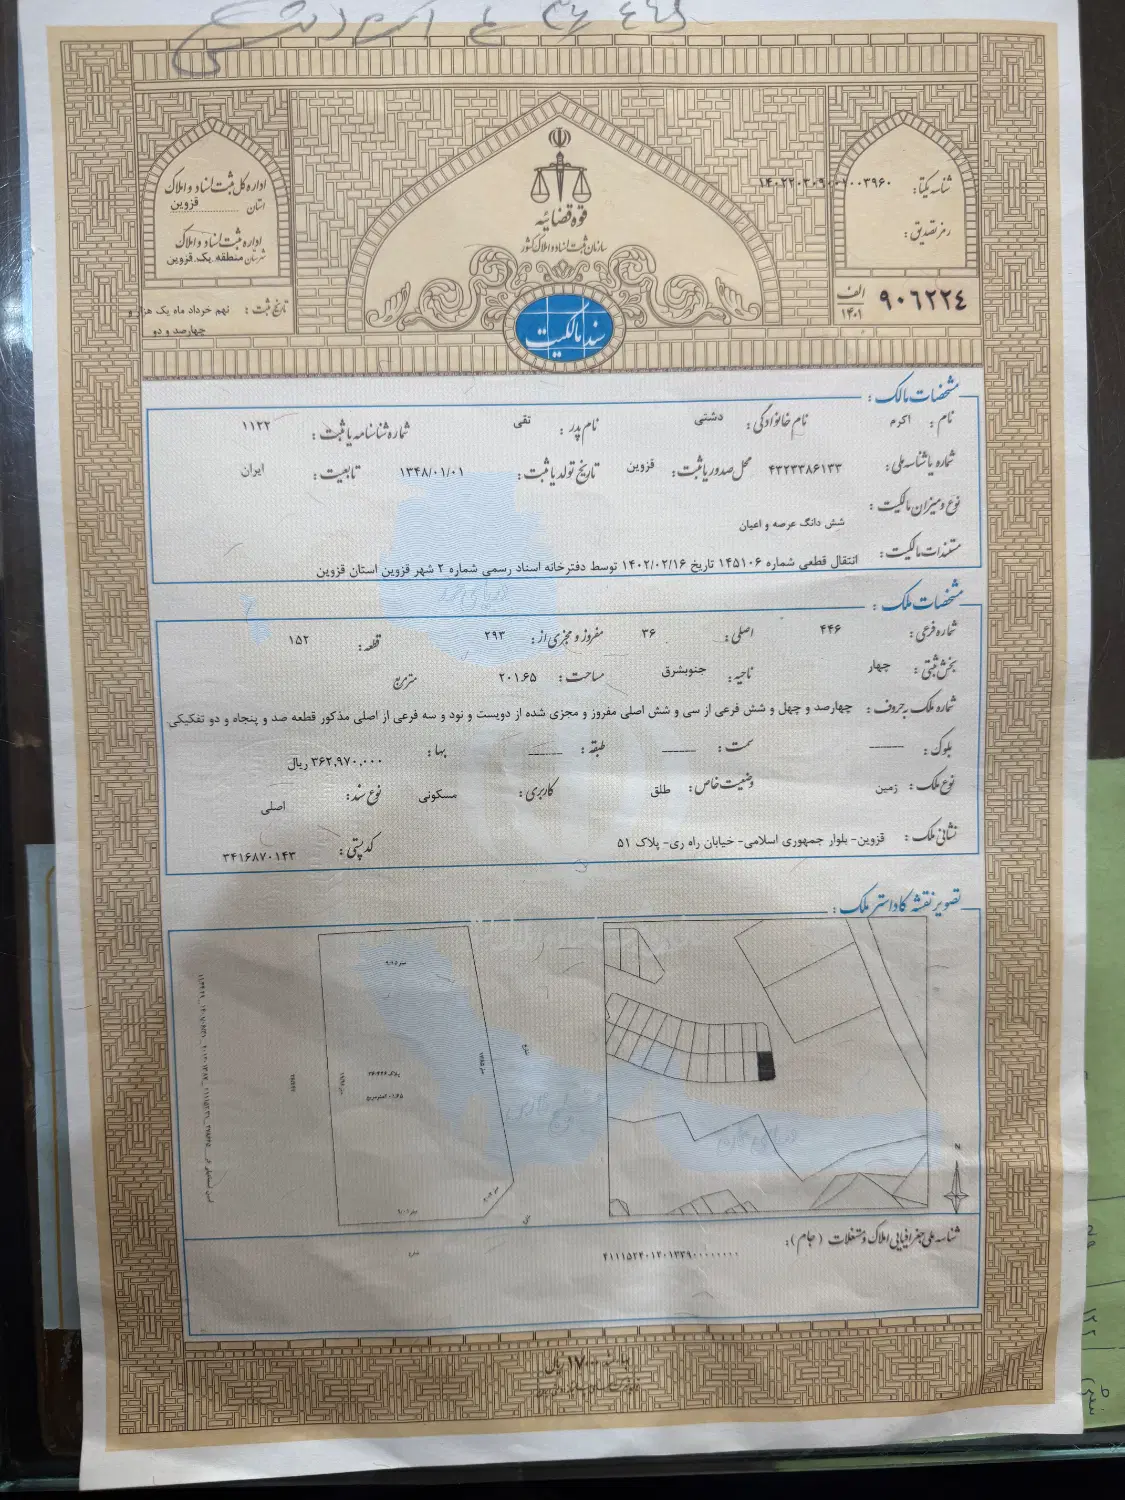 اداره کل ثبت اسناد و املاک
استان قزوین
اداره ثبت اسناد و املاک
شهرستان منطقه یک قزوین
تاریخ ثبت : نهم خرداد ماه یک هزار و چهارصد و دو
قوه قضائیه
سازمان ثبت اسناد و املاک کشور
سند مالکیت
شناسه یکتا: ۱۴۰۲۲۰۳۰۹۰۰۷۰۰۳۹۶۰
رمز تصدیق :
۹۰۶۲۲٤ الف ۱۴۰۱
مشخصات مالک :
نام : اکرم نام خانوادگی : دشتی نام پدر : تقی شماره شناسنامه یا ثبت : ۱۱۲۲
شماره یا شناسه ملی : ۴۳۲۳۳۸۶۱۳۳ محل صدور یا ثبت : قزوین تاریخ تولد یا ثبت : ۱۳۴۸/۰۱/۰۱ تابعیت : ایران
نوع و میزان مالکیت :
شش دانگ عرصه و اعیان
مستندات مالکیت : انتقال قطعی شماره ۱۴۵۱۰۶ تاریخ ۱۴۰۲/۰۲/۱۶ توسط دفترخانه اسناد رسمی شماره ۲ شهر قزوین استان قزوین
مشخصات ملک :
شماره فرعی : ۴۴۶ اصلی : ۳۶ مفروز و مجزی از : ۲۹۳ قطعه : ۱۵۲
بخش ثبتی : چهار ناحیه : جنوبشرق مساحت : ۲۰۱.۶۵ مترمربع
شماره ملک به حروف : چهارصد و چهل و شش فرعی از سی و شش اصلی مفروز و مجزی شده از دویست و نود و سه فرعی از اصلی مذکور قطعه صد و پنجاه و دو تفکیکی
بلوک : ------ سمت : ------ طبقه : ------ بها : ۳۶۲,۹۷۰,۰۰۰ ریال
نوع ملک : زمین وضعیت خاص : طلق کاربری : مسکونی نوع سند : اصلی
نشانی ملک : قزوین- بلوار جمهوری اسلامی- خیابان راه ری- پلاک ۵۱ کد پستی : ۳۴۱۶۸۷۰۱۴۳
تصویر نقشه کاداستر ملک :
N
شناسه ملی جغرافیایی املاک و مستغلات (جام) :